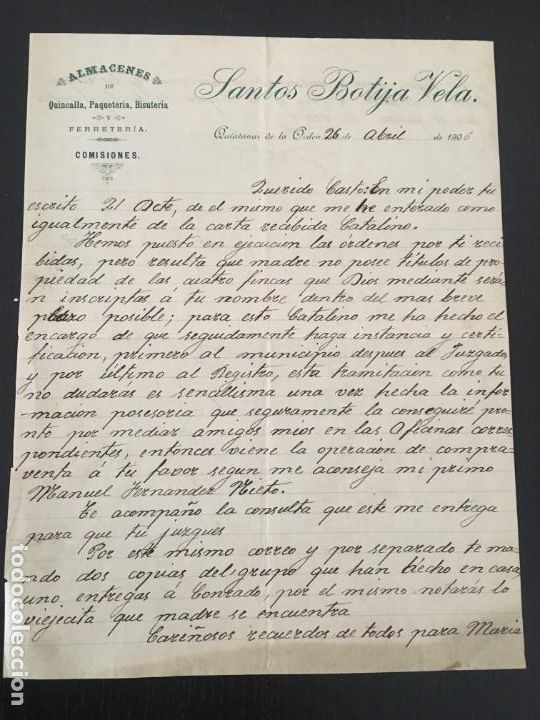 ALMACENES
DE
Quincalla, Paquetería, Bisutería
Y
FERRETERÍA.
COMISIONES.
Santos Botija Vela.
Quintanar de la Orden 26 de Abril de 1906
Querido Casto: En mi poder tu
escrito 21 Octe, de el mismo que me he enterado como
igualmente de la carta recibida Catalino.
Hemos puesto en ejecucion las órdenes por ti reci
bidas, pero resulta que madre no posee títulos de pro
piedad de las cuatro fincas que Dios mediante será
n inscriptas á tu nombre dentro del mas breve
plazo posible; para esto Catalino me ha hecho el
encargo de que seguidamente haga instancia y certi
ficacion, primero al municipio despues al Juzgado,
y por último al Registro, esta tramitacion como tu
no dudaras es sencillisima una vez hecha la infor
macion posesoria que seguramente la conseguiré pro
nto por mediar amigos mios en las Oficinas corres
pondientes, entonces viene la operacion de compra-
venta á tu favor segun me aconseja mi primo
Manuel Fernandez Nieto.
Te acompaño la consulta que este me entrega
para que tu juzgues
Por este mismo correo y por separado te ma
ndo dos copias del grupo que han hecho en casa,
uno entregas á Conrado, por el mismo notarás lo
viejecita que madre se encuentra
Cariñosos recuerdos de todos para Maria
todocoleccion